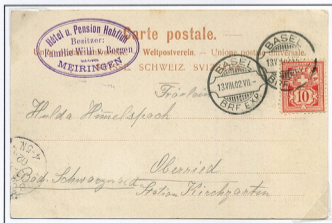 Hôtel u. Pension Hohfluh
Besitzer:
Familie Willi v. Bergen
MEIRINGEN
Carte postale.
Weltpostverein. — Union postale universelle.
SCHWEIZ. SVIZZERA
BASEL
13.VII.02.VII
BRF. EXP.
BASEL
13.VII.02
10
Fräulein
Hulda Himelspach
Oberried
Bad. Schwarzwald
Station Kirchgarten